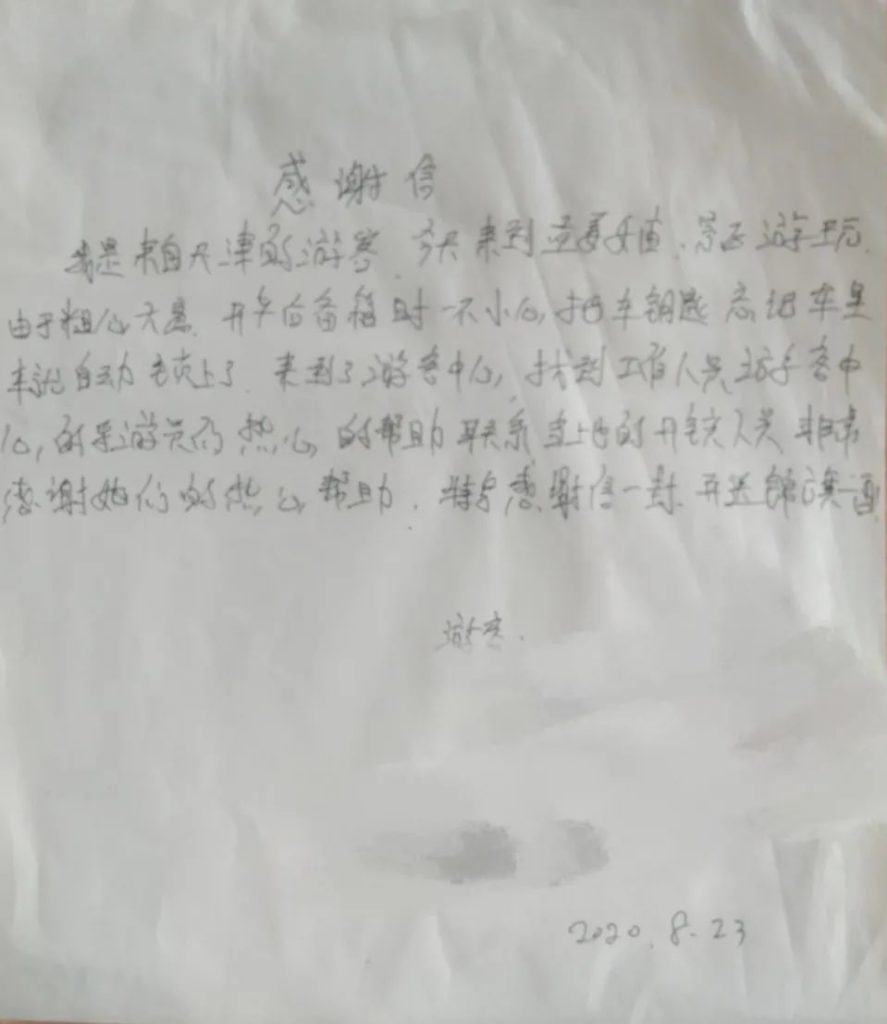 感谢信
我是来自天津的游客.今天来到景区游玩.
由于粗心大意.开车后备箱时一不小心,把车钥匙忘记车里
车就自动锁上了.来到了游客中心,找到工作人员游客中
心,的导游员的热心的帮助联系当地的开锁人员非常
感谢她们的热心帮助.特写感谢信一封.再送锦旗一面
游客.
2020.8.23